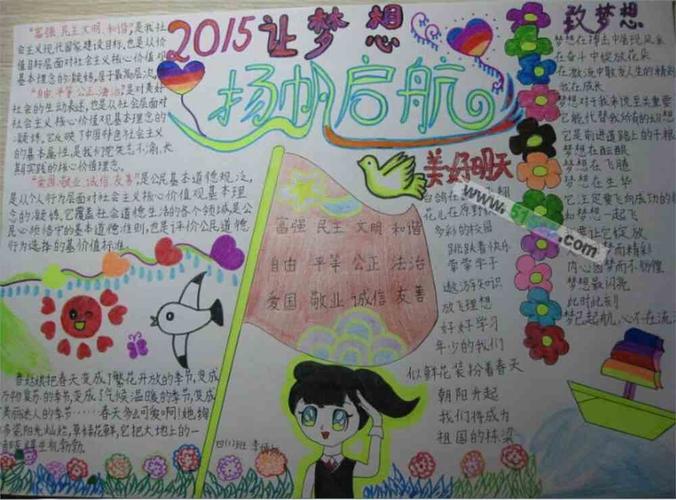 2015让梦想
扬帆启航
"富强、民主、文明、和谐",是我社
会主义现代国家建设目标,也是从价
值目标层面对社会主义核心价值观
基本理念的凝练,居于最高层次
"自由、平等、公正、法治",是对美好
社会的生动表述,也是从社会层面对
社会主义核心价值观基本理念的
凝练,它反映了中国特色社会主义
的基本属性,是我们党矢志不渝,长
期实践的核心价值理念。
"爱国、敬业、诚信、友善"是公民基本道德规范,
是从个人行为层面对社会主义核心价值观基本理
念的凝练,它覆盖社会道德生活的各个领域,是公
民必须恪守的基本道德准则,也是评价公民道德
行为选择的基价值标准。
富强 民主 文明 和谐
自由 平等 公正 法治
爱国 敬业 诚信 友善
春姑娘把春天变成了繁花开放的季节,变成
万物复苏的季节,变成了气候温暖的季节,变成
美丽迷人的季节……春天多么可爱啊!她拥
阳光灿烂,草绿花鲜,它把大地上的一
勃勃。
美好明天
白鸽在
花儿在原野
多彩的校园
跳跃着快乐
莘莘学子
遨游知识
放飞理想
好好学习
年少的我们
似鲜花装扮着春天
朝阳升起
我们将成为
祖国的栋梁
致梦想
梦想在
在奋斗中绽放花朵
我在成长
梦想对于我来说至关重要
它能代替我所有的幻想
它是前进道路上的
梦想在
梦想在飞腾
梦想在生华
它注定要飞向成功的
和梦想一起飞
要让它绽放
梦而精彩
内心因梦而不彷徨
梦想最闪亮
此时此刻
梦已起航,心不在流
四(1)班
.com